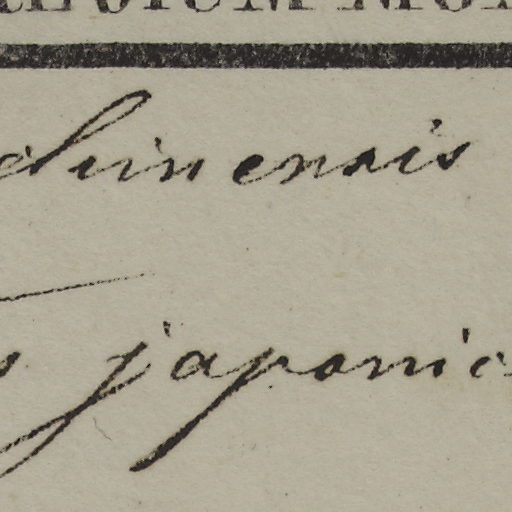 chinensis
japonic